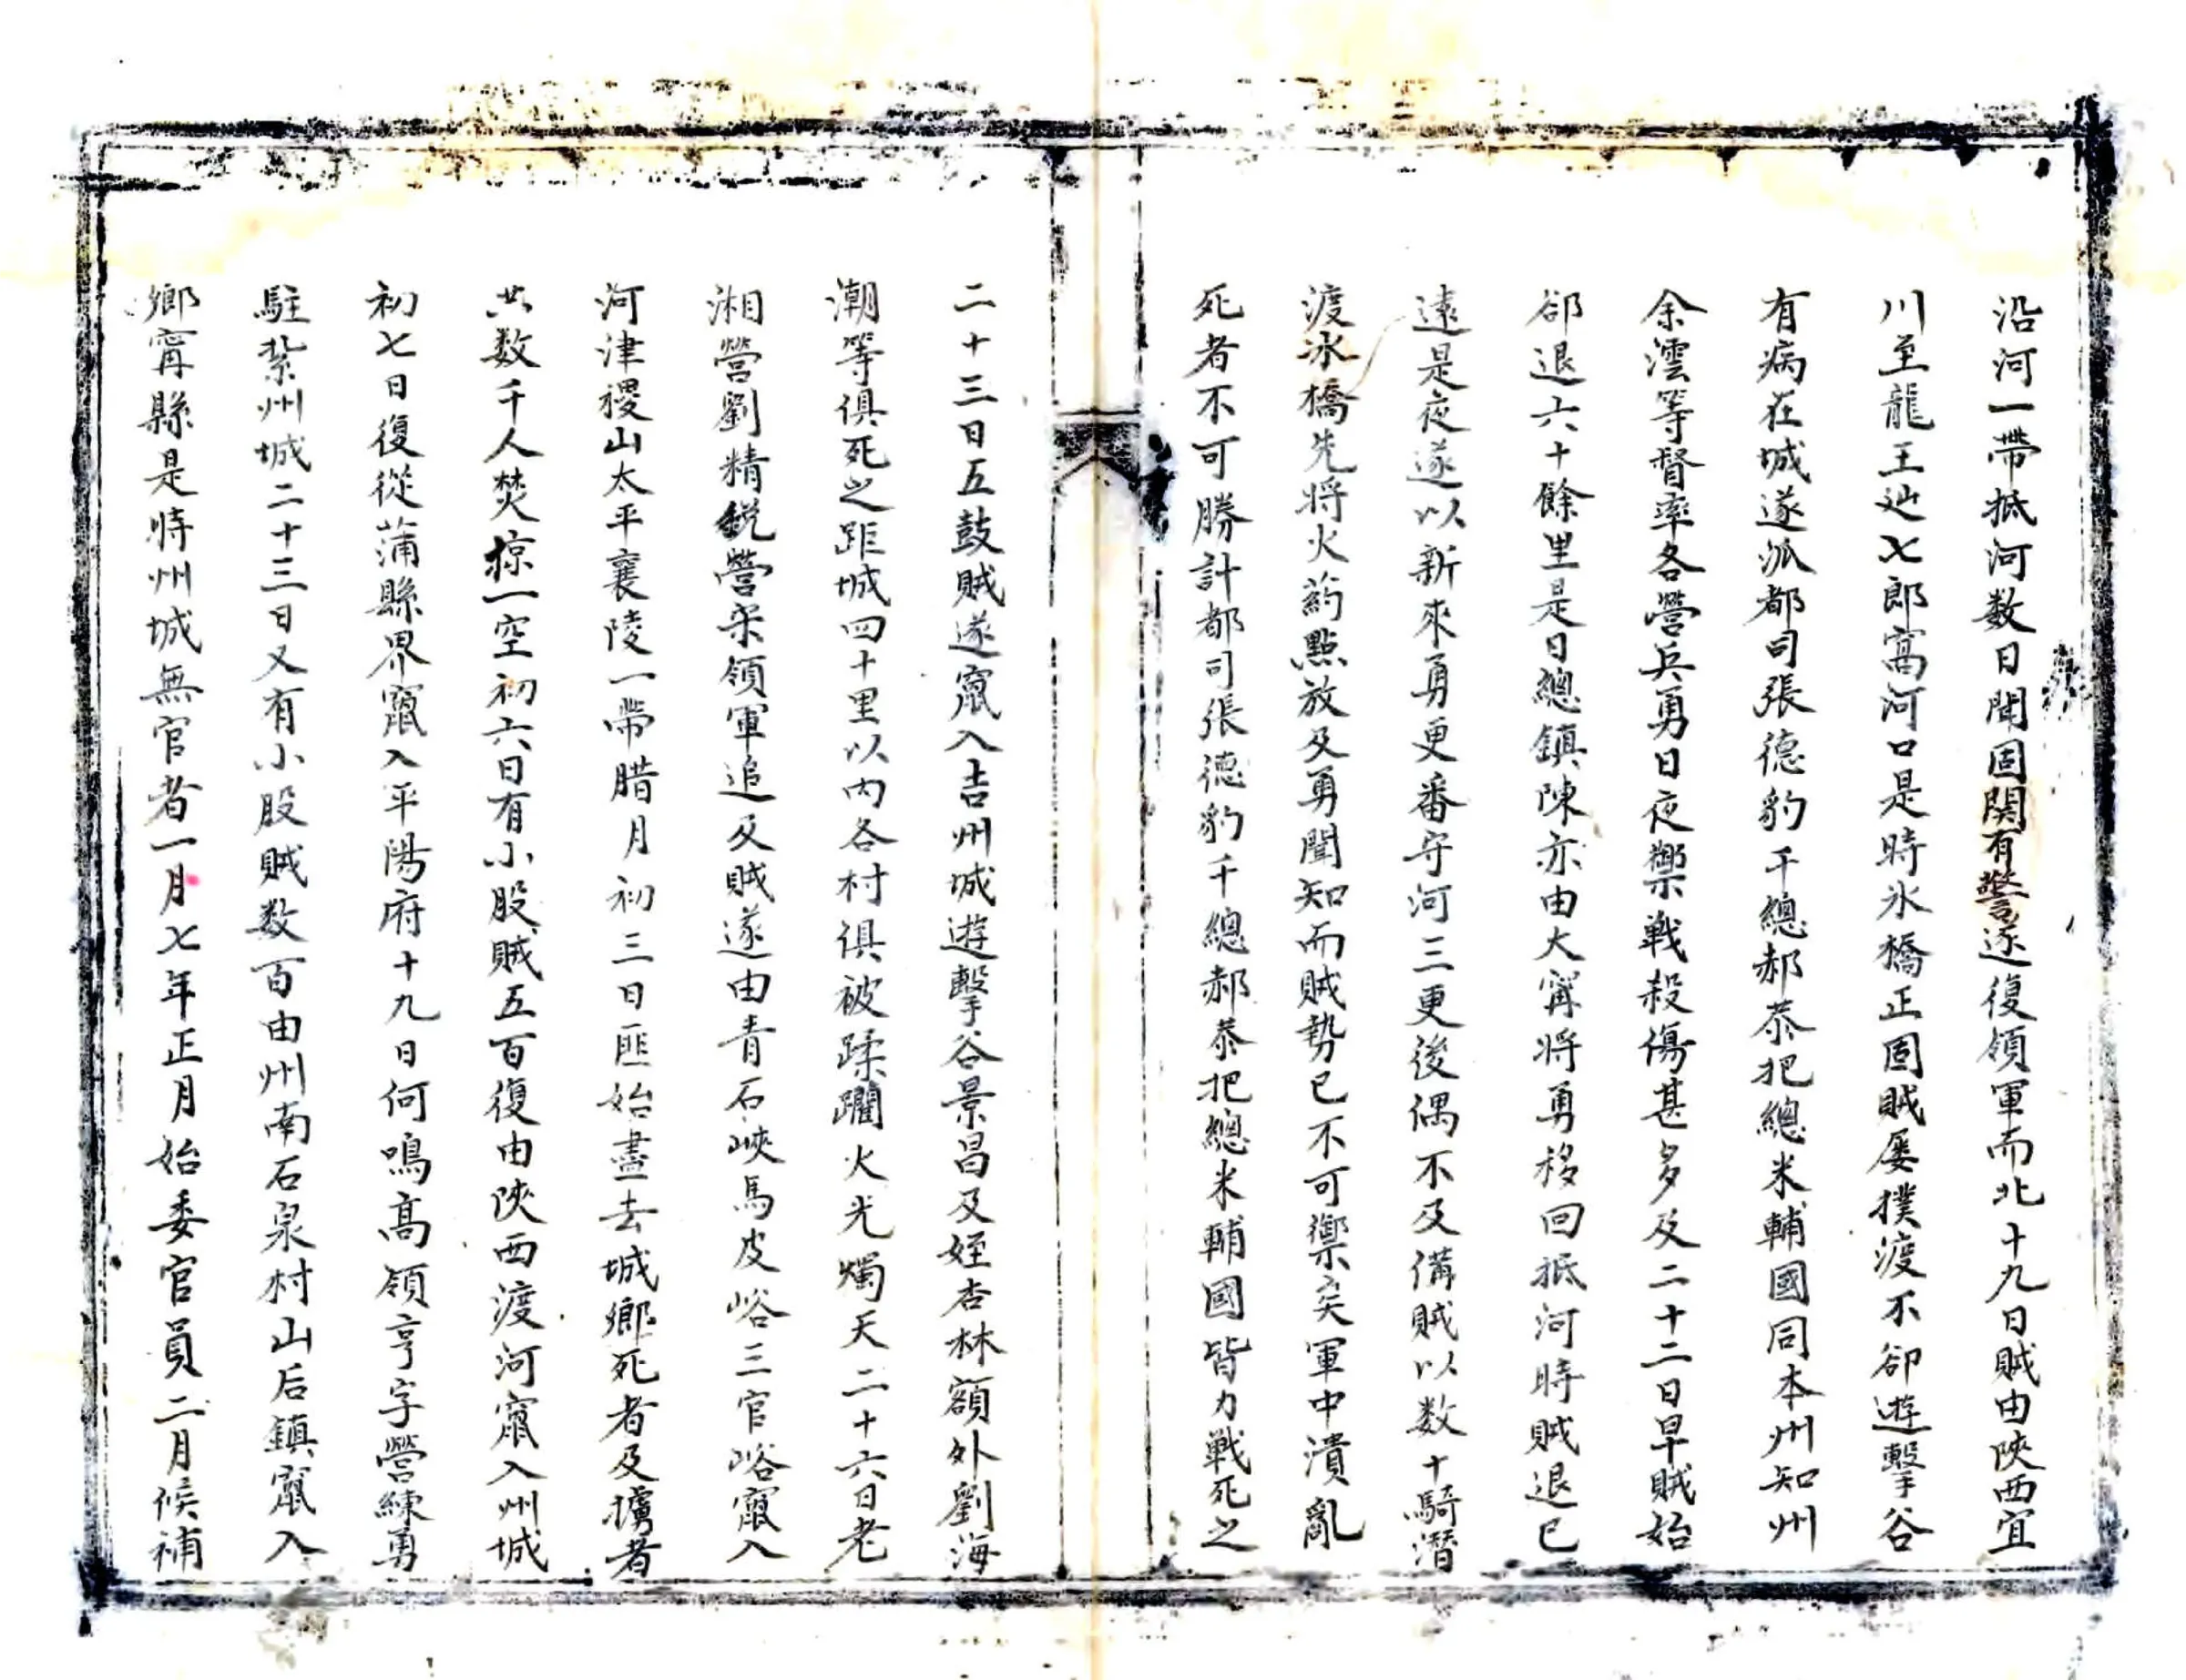 沿河一帶抵河数日聞固関有警遂復領軍而北十九日賊由陝西宜
川至龍王辿七郎窩河口是時氷橋正固賊屡撲渡不卻遊擊谷
有病在城遂派都司張德豹千總郝恭把總米輔國同本州知州
余澐等督率各營兵勇日夜禦戦殺傷甚多及二十二日早賊始
卻退六十餘里是日總鎮陳亦由大寗将勇移回抵河時賊退已
遠是夜遂以新來勇更番守河三更後偶不及俻賊以数十騎潛
渡氷橋先将火葯點放及勇聞知而賊勢已不可禦矣軍中潰亂
死者不可勝計都司張德豹千總郝恭把總米輔國皆力戦死之
二十三日五鼓賊遂竄入吉州城遊擊谷景昌及姪杏林額外劉海
潮等俱死之距城四十里以内各村俱被蹂躪火光燭天二十六日老
湘營劉精銳營宋領軍追及賊遂由青石峽馬皮峪三官峪竄入
河津稷山太平襄陵一帶腊月初三日匪始盡去城鄉死者及擄者
共数千人焚掠一空初六日有小股賊五百復由陝西渡河竄入州城
初七日復從蒲縣界竄入平陽府十九日何鳴高領亨字營練勇
駐紮州城二十三日又有小股賊数百由州南石泉村山后鎮竄入
鄉寗縣是時州城無官者一月七年正月始委官員二月候補